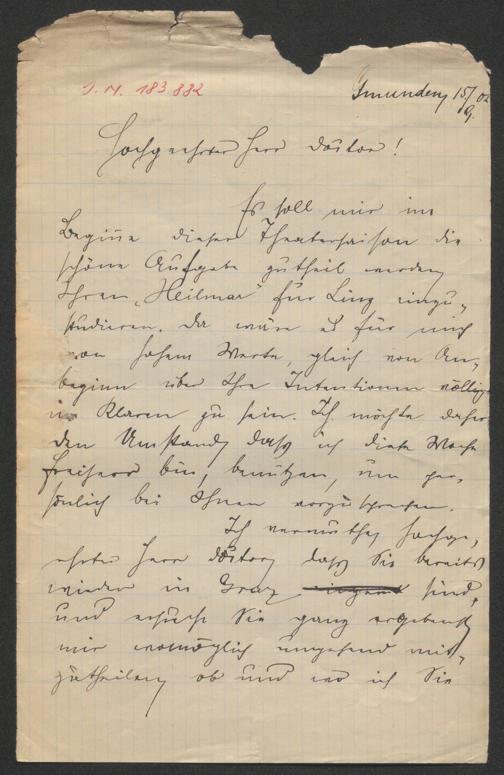 I. N. 183.832
Gmunden, 15/9. 02
Hochgeehrter Herr Doktor!
Es soll mir im
Beginne dieser Theatersaison die
schöne Aufgabe zutheil werden,
Ihren „Heilmar" für Linz einzu-
studieren. Da wäre es für mich
von hohem Werte, gleich von An-
beginn über Ihre Intentionen völlig
im Klaren zu sein. Ich möchte daher
den Umstand, dass ich diese Woche
freiherr bin, benützen, um per-
sönlich bei Ihnen vorzusprechen.
Ich vermuthe, hochge-
ehrter Herr Doktor, dass Sie bereits
wieder in Graz sind,
und ersuche Sie ganz ergebenst
mir womöglich umgehend mit-
zutheilen, ob und wo ich Sie